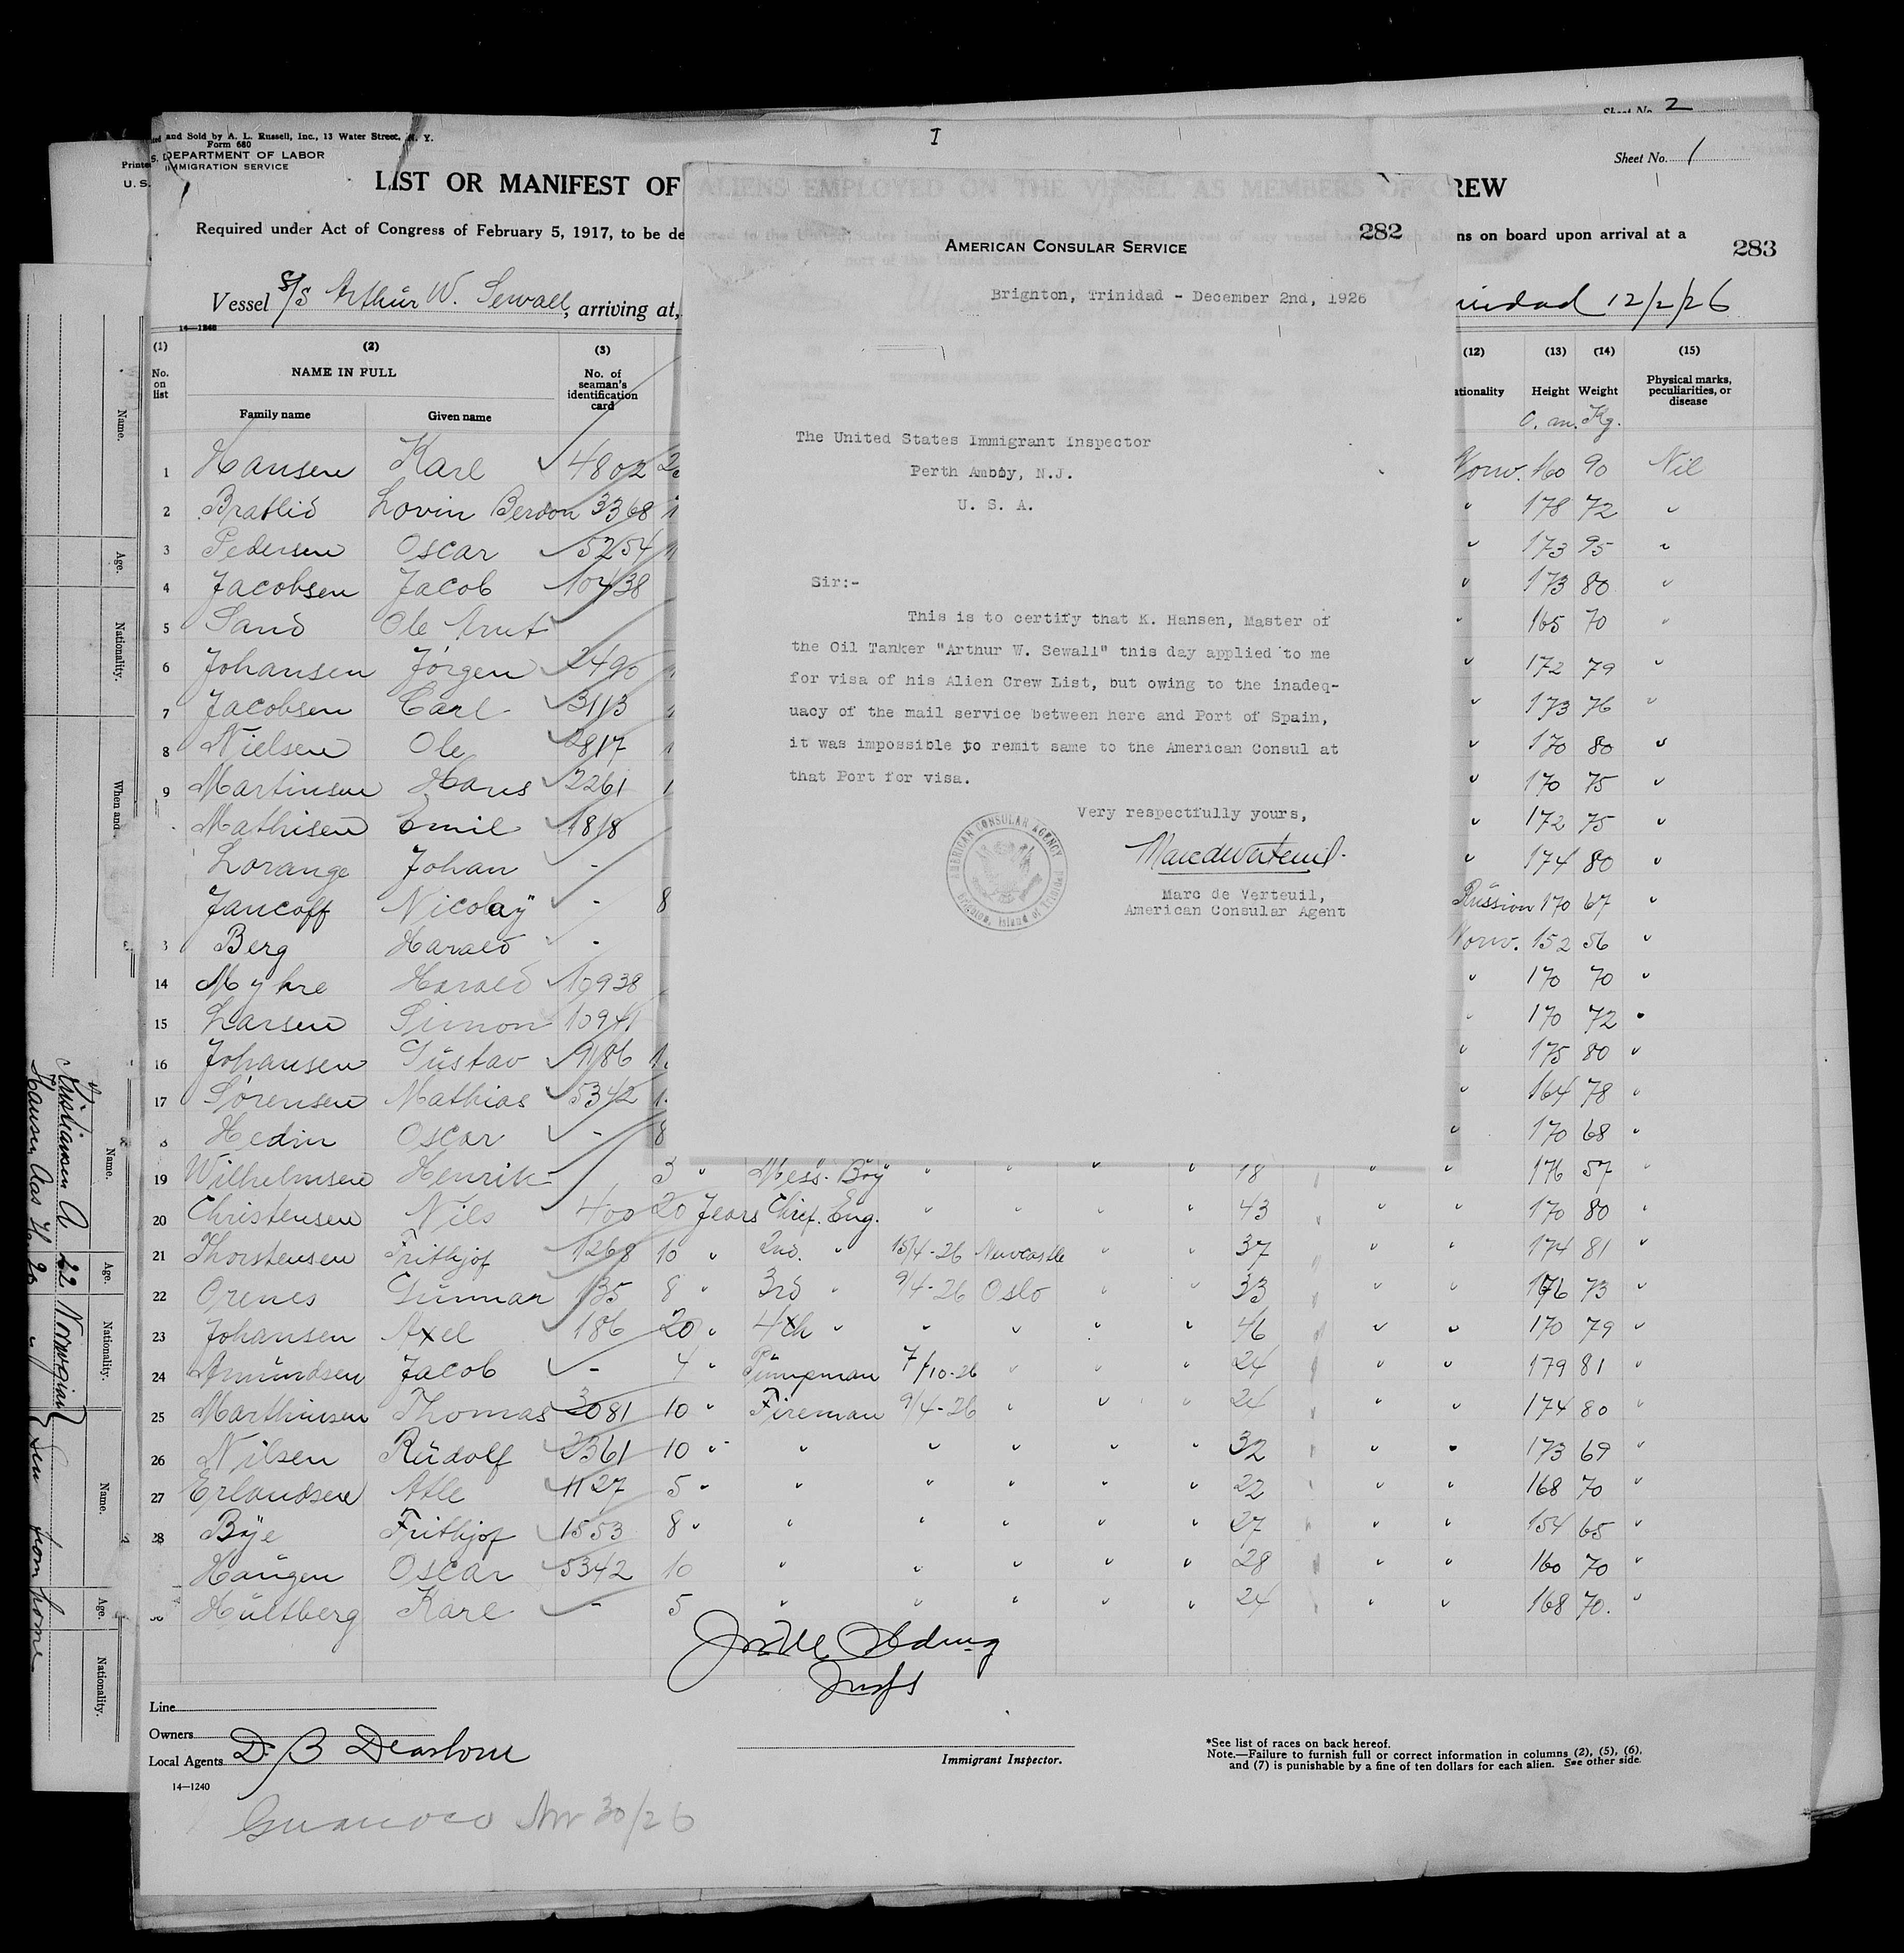 Sheet No. 2
and Sold by A. L. Russell, Inc., 13 Water Street, N. Y.
Form 680
DEPARTMENT OF LABOR
IMMIGRATION SERVICE
Printe
U. S.
I
Sheet No. 1
LIST OR MANIFEST OF ALIENS EMPLOYED ON THE VESSEL AS MEMBERS OF CREW
Required under Act of Congress of February 5, 1917, to be de
ns on board upon arrival at a
283
Vessel S/S Arthur W. Sewall, arriving at,
nidad 12/2/26
14—1240
282
AMERICAN CONSULAR SERVICE
Brighton, Trinidad - December 2nd, 1926
The United States Immigrant Inspector
Perth Amboy, N.J.
U. S. A.
Sir:-
This is to certify that K. Hansen, Master of
the Oil Tanker "Arthur W. Sewall" this day applied to me
for visa of his Alien Crew List, but owing to the inadeq-
uacy of the mail service between here and Port of Spain,
it was impossible to remit same to the American Consul at
that Port for visa.
Very respectfully yours,
AMERICAN CONSULAR AGENCY
Brighton, Island of Trinidad
Marc de Verteuil.
Marc de Verteuil,
American Consular Agent
(1) (2) (3) (12) (13) (14) (15)
No. on list NAME IN FULL No. of seaman's identification card ationality Height Weight Physical marks, peculiarities, or disease
Family name Given name
c. m. Kg.
1 Hansen Karl 4802 Norw. 160 90 Nil
2 Bratlid Lovin Berdon 3368 " 178 72 "
3 Pedersen Oscar 5254 " 173 95 "
4 Jacobsen Jacob 10438 " 173 80 "
5 Sand Ole Knut " 165 70 "
6 Johansen Jörgen 2490 " 172 79 "
7 Jacobsen Carl 3113 " 173 76 "
8 Nielsen Ole 2817 " 170 80 "
9 Martinsen Hans 2261 " 170 75 "
Mathisen Emil 1818 " 172 75 "
Lorange Johan - " 174 80 "
Jancoff Nicolaÿ - 8 Russion 170 67 "
3 Berg Harald - Norw. 152 56 "
14 Myhre Harald 10938 " 170 70 "
15 Larsen Simon 10941 " 170 72 "
16 Johansen Gustav 9186 " 175 80 "
17 Sörensen Mathias 5342 " 164 78 "
8 Hedin Oscar - 8 " 170 68 "
19 Wilhelmsen Henrik - 3 " Mess. Boy " " " " 18 " " 176 57 "
20 Christensen Nils 400 20 Years Chief. Eng. " " " " 43 " " 170 80 "
21 Thorstensen Frithjof 1268 10 " 2nd. " 15/4-26 Newcastle " " 37 " " 174 81 "
22 Orenes Gunnar 135 8 " 3rd " 9/4-26 Oslo " " 33 " " 176 73 "
23 Johansen Axel 186 20 " 4th " " " " " 46 " " 170 79 "
24 Amundsen Jacob - 4 " Pumpman 7/10-26 " " " 24 " " 179 81 "
25 Marthinsen Thomas 3081 10 " Fireman 9/4-26 " " " 24 " " 174 80 "
26 Nilsen Rudolf 2361 10 " " " " " " 32 " " 173 69 "
27 Erlandsen Atle 1127 5 " " " " " " 22 " " 168 70 "
28 Bÿe Frithjof 1553 8 " " " " " " 27 " " 154 65 "
Haugen Oscar 5342 10 " " " " " 28 " " 160 70 "
Hultberg Karl - 5 " " " " " 24 " " 168 70. "
Insp
Line
Owners
Local Agents D. B. Dearborn
Immigrant Inspector.
*See list of races on back hereof.
Note.—Failure to furnish full or correct information in columns (2), (5), (6),
and (7) is punishable by a fine of ten dollars for each alien. See other side.
14—1240
Guanoco Nov 30/26
Name.
Age.
Nationality.
When and
Name. Age. Nationality. Name. Age. Nationality.
Kristiansen A 22 Norwegian
Hansen Aas 20 " " from home